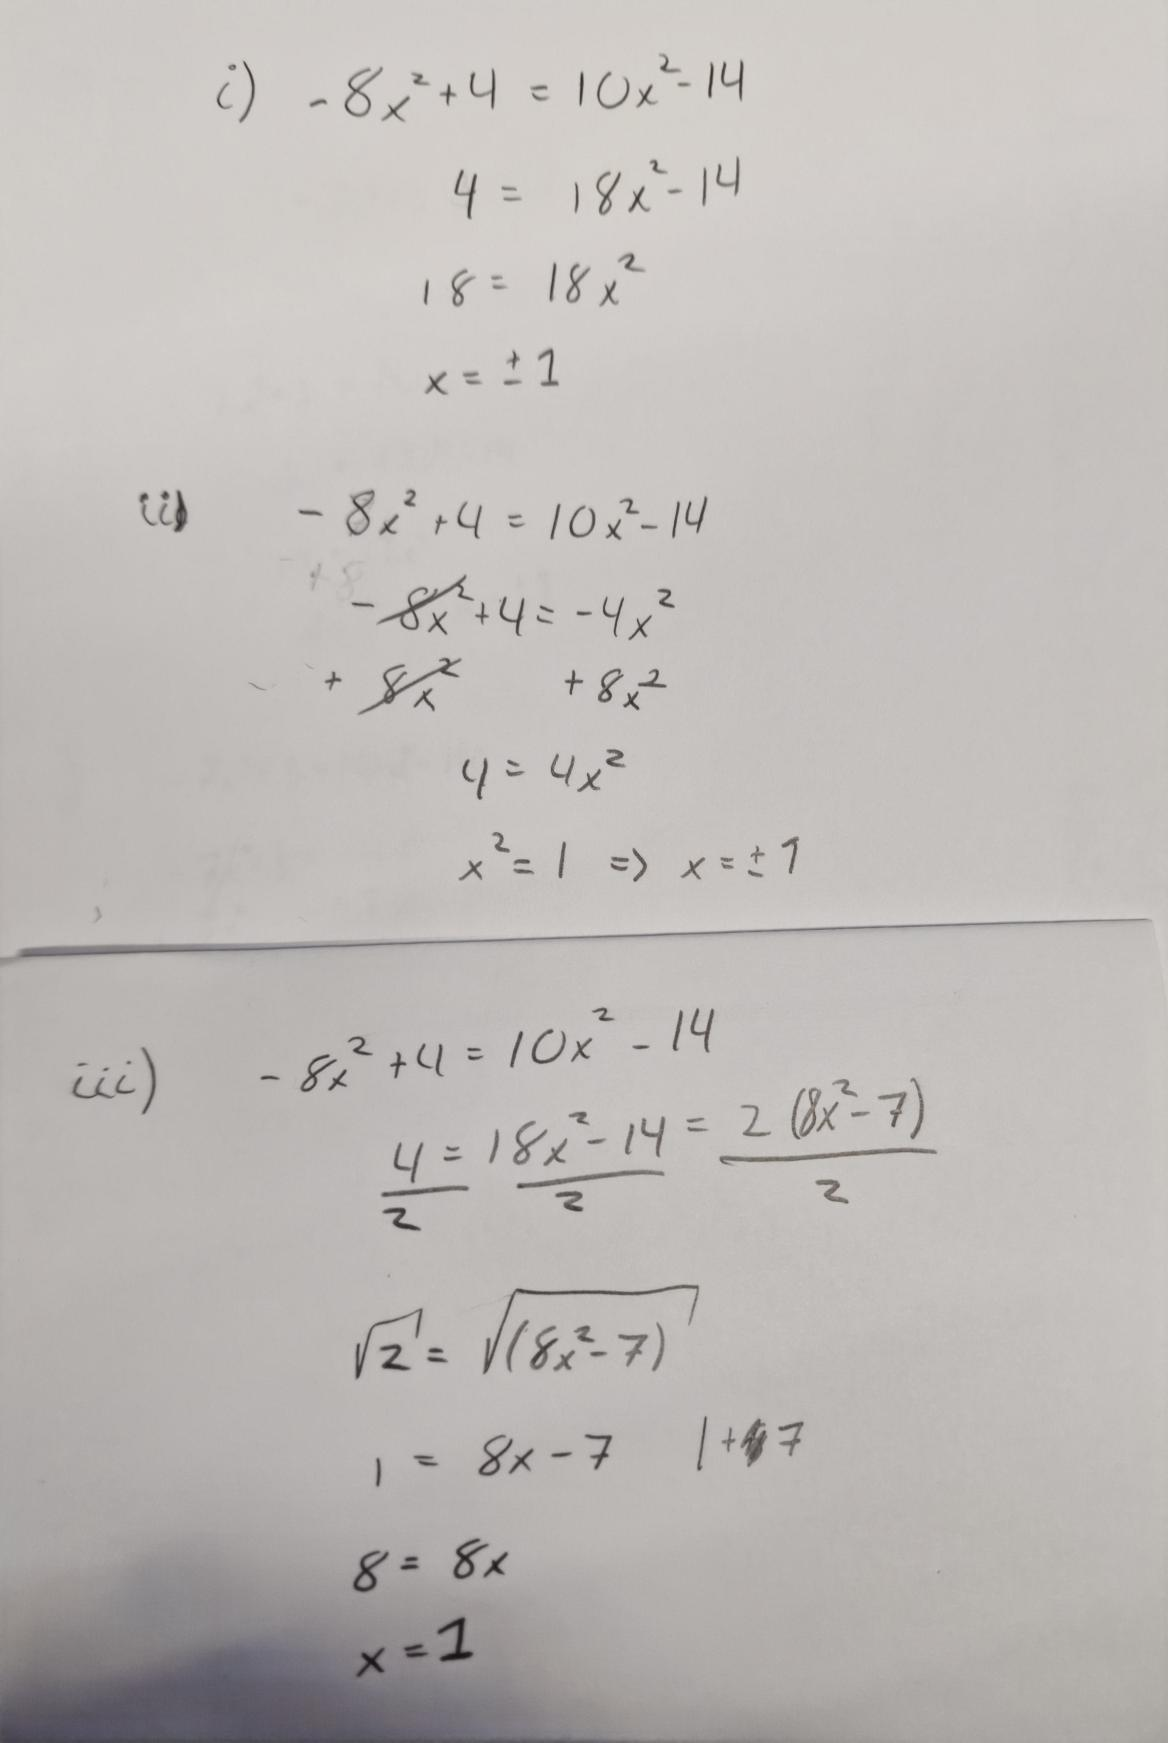 i) -8x²+4 = 10x²-14
4 = 18x²-14
18 = 18x²
x = ±1
ii) -8x²+4 = 10x²-14
-8x²+4 = -4x²
+ 8x² +8x²
4 = 4x²
x² = 1 => x = ±1
iii) -8x²+4 = 10x²-14
4/2 = 18x²-14/2 = 2(8x²-7)/2
√2 = √(8x²-7)
1 = 8x-7 |+7
8 = 8x
x = 1